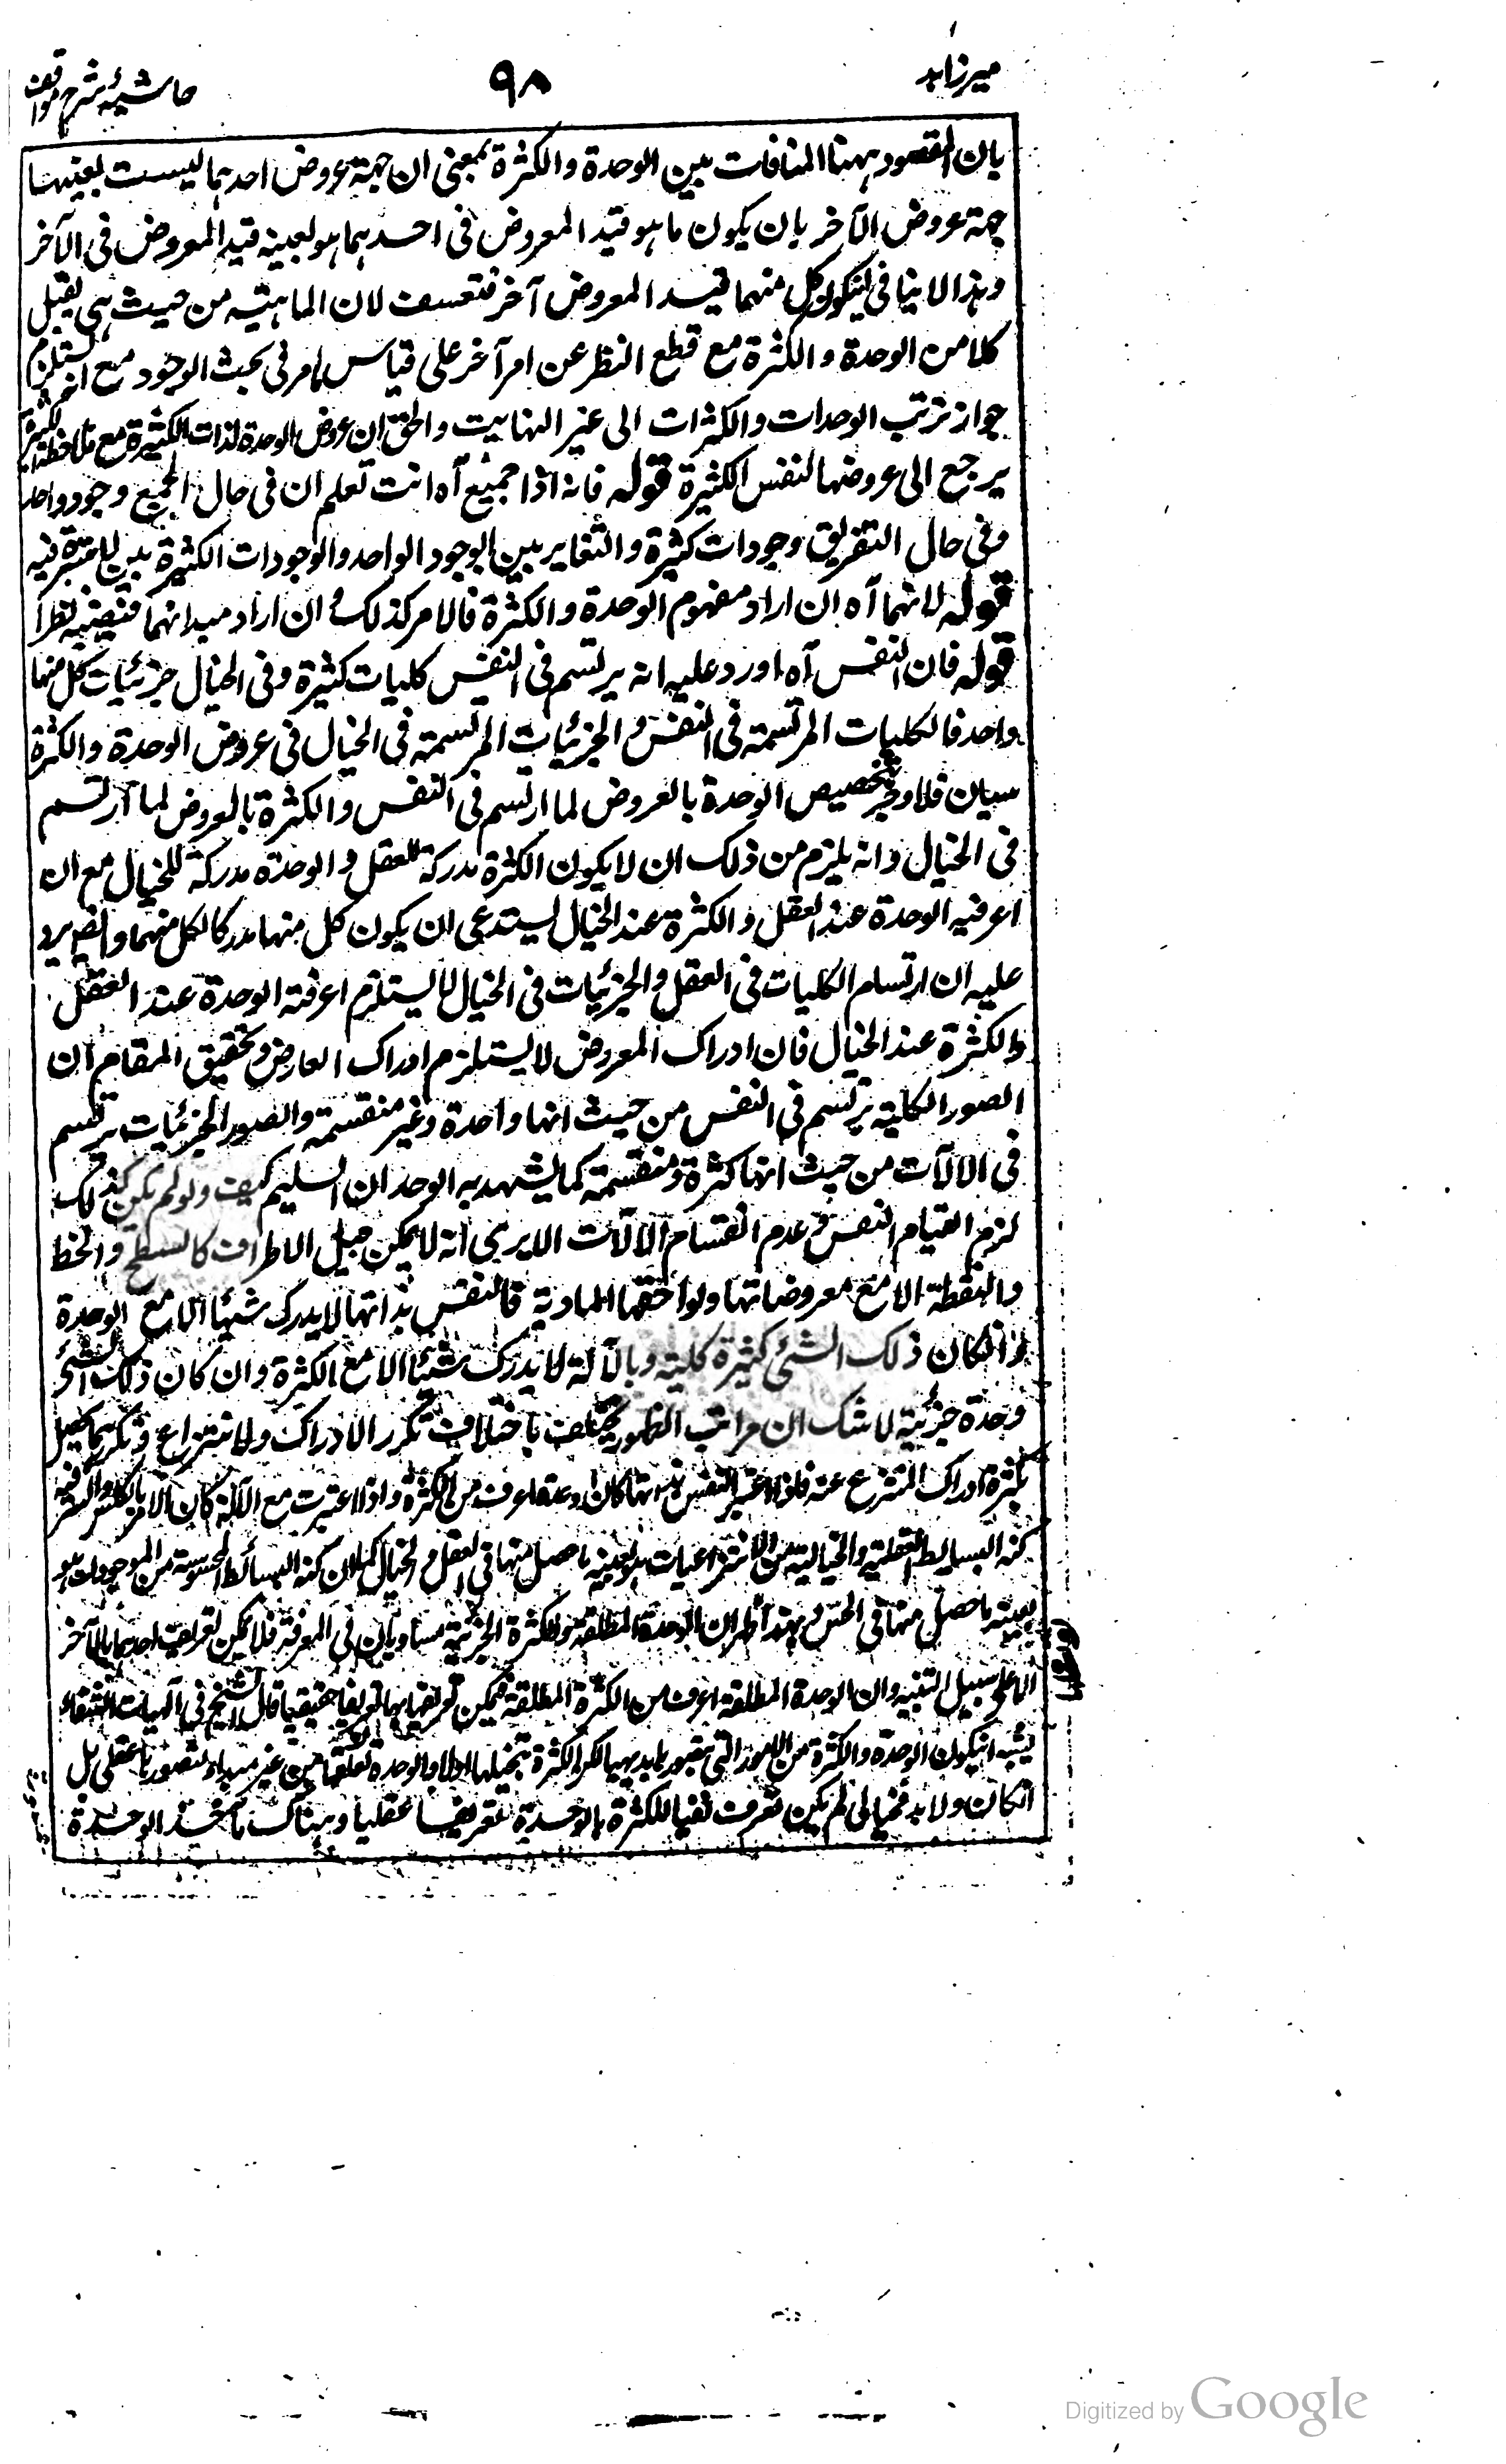 ميرزاہد
٩٨
حاشيۂ شرح مواقف
بان المقصود ههنا المنافات بين الوحدة والكثرة بمعنى ان جهة عروض احدهما ليست بعينها
جهة عروض الآخر بان يكون ما هو قيد المعروض فى احدهما هو بعينه قيد المعروض فى الآخر
وهذا لا ينافى ليكون كل منهما قيد المعروض آخر فتعسف لان الماهية من حيث هى يقبل
كلا من الوحدة والكثرة مع قطع النظر عن امر آخر على قياس ما مر فى بحث الوجود مع انه يستلزم
جواز ترتب الوحدات والكثرات الى غير النهايت والحق ان عروض الوحدة لذات الكثيرة مع ملاحظة الكثرة
يرجع الى عروضها لنفس الكثيرة قوله فانه اذا جميع آه انت تعلم ان فى حال الجميع وجود واحد
وفى حال التفريق وجودات كثيرة والتغاير بين الوجود الواحد والوجودات الكثيرة بين لا سترة فيه
قوله لانهما آه ان اراد مفهوم الوحدة والكثرة فالامر كذلك وان اراد مبدانهما ففيه نظر
قوله فان النفس آه اورد عليه انه يرتسم فى النفس كليات كثيرة وفى الخيال جزئيات كل منها
واحد فالكليات المرتسمة فى النفس والجزئيات المرتسمة فى الخيال فى عروض الوحدة والكثرة
سيان فلا وجه لتخصيص الوحدة بالعروض لما ارتسم فى النفس والكثرة بالعروض لما ارتسم
فى الخيال وانه يلزم من ذلك ان لا يكون الكثرة مدركة للعقل والوحدة مدركة للخيال مع ان
اعرفية الوحدة عند العقل والكثرة عند الخيال يستدعى ان يكون كل منهما مدركا لكل منهما وايضا يرد
عليه ان ارتسام الكليات فى العقل والجزئيات فى الخيال لا يستلزم اعرفية الوحدة عند العقل
والكثرة عند الخيال فان ادراك المعروض لا يستلزم ادراك العارض وتحقيق المقام ان
الصور الكلية يرتسم فى النفس من حيث انها واحدة وغير منقسمة والصور الجزئيات يرتسم
فى الالآت من حيث انها كثرة ومنقسمة كما يشهد به الوجدان السليم كيف ولو لم يكن كذلك
لزم انقسام النفس وعدم انقسام الالآت الا يرى انه لا يمكن تخيل الاطراف كالسطح والخط
والنقطة الا مع معروضاتها ولواحقها المادية فالنفس بذاتها لا يدرك شيئا الا مع الوحدة
وانكان ذلك الشئ كثيرة كلية وبالآلة لا يدرك شيئا الا مع الكثرة وان كان ذلك الشئ
وحدة جزئية لا شك ان مراتب الظهور يختلف باختلاف تكرر الادراك والانتزاع وتكررهما يحصل
بكثرة ادراك المنتزع عنه فاذا اعتبر النفس بذاتها كان الوحدة اعرف من الكثرة واذا اعتبرت مع الآلة كان الامر بالعكس والسر فيه
كنه البسايط العقلية والخيالية من الانتزاعيات هو بعينه ما حصل منها فى العقل والخيال كما ان كنه البسائط المحسوسة من الموجودات هو
بعينه ما حصل منها فى الحس وبهذا ظهر ان الوحدة المطلقة والكثرة الجزئية متساويان فى المعرفة فلا يمكن تعريف احدهما بالآخر
الا على سبيل التنبيه وان الوحدة المطلقة اعرف من الكثرة المطلقة فيمكن تعريفها بها تعريفا حقيقيا قال الشيخ فى آلهيات الشفاء
يشبه انيكون الوحدة والكثرة من الامور التى نتصورها بديهيا لكن الكثرة نتخيلها اولا والوحدة نعقلها من غير مبدء لتصورها عقلى بل
انكان ولابد فخيالى ثم يكون تعريفنا للكثرة بالوحدة تعريفا عقليا وهناك نأخذ الوحدة
Digitized by Google